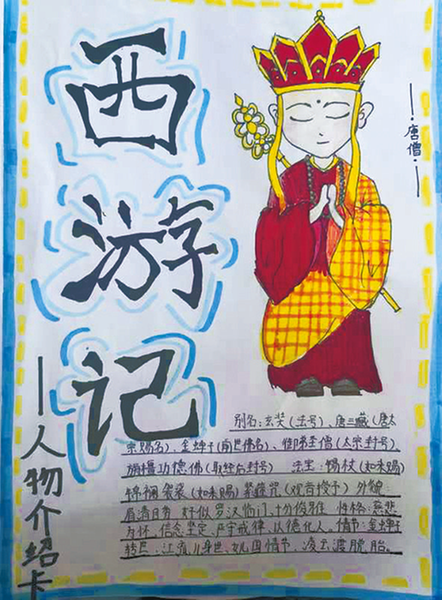 西游记
——人物介绍卡
唐僧
别名：玄奘（法号）、唐三藏（唐太
宗赐名）、金蝉子（前世佛名）、御弟圣僧（太宗封号）
旃檀功德佛（取经后封号） 法宝：锡杖（如来赐）
锦襕袈裟（如来赐）紧箍咒（观音授予）外貌
眉清目秀 好似罗汉临门、十分俊雅 性格：慈悲
为怀、信念坚定、严守戒律、以德化人。情节：金蝉子
转世、江流儿身世、女儿国情节、凌云渡脱胎。